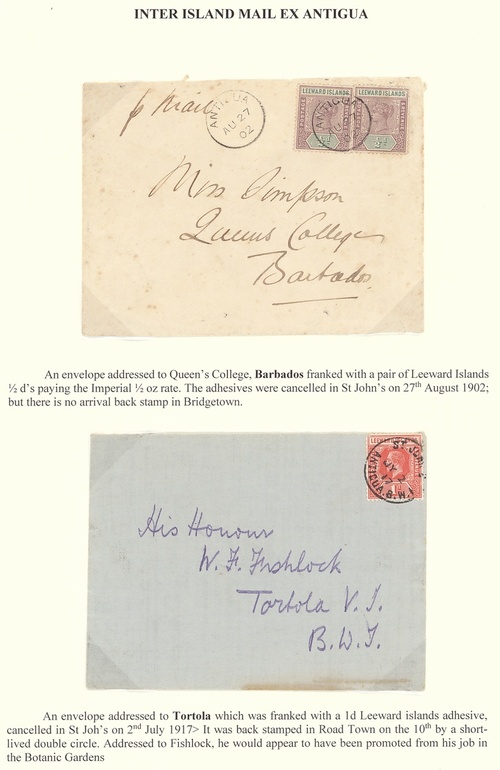 INTER ISLAND MAIL EX ANTIGUA
p Mail
ANTIGUA
AU 27
02
LEEWARD ISLANDS
LEEWARD ISLANDS
ANTIGUA
AU 27
02
½d
½d
Miss Simpson
Queens College
Barbados
An envelope addressed to Queen's College, Barbados franked with a pair of Leeward Islands
½ d's paying the Imperial ½ oz rate. The adhesives were cancelled in St John's on 27th August 1902;
but there is no arrival back stamp in Bridgetown.
ANTIGUA. B.W.I.
JY 2
17
1d
His Honour
W. F. Fishlock
Tortola V. I.
B.W.I.
An envelope addressed to Tortola which was franked with a 1d Leeward islands adhesive,
cancelled in St Joh's on 2nd July 1917> It was back stamped in Road Town on the 10th by a short-
lived double circle. Addressed to Fishlock, he would appear to have been promoted from his job in
the Botanic Gardens